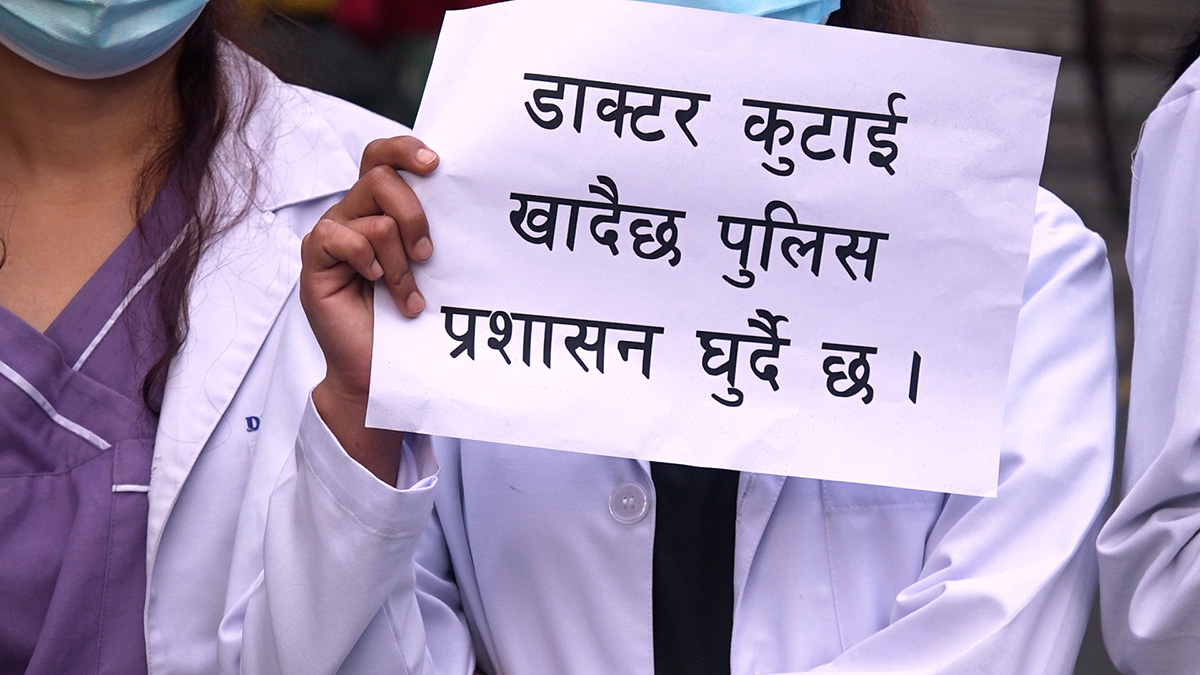 डाक्टर कुटाई
खादैछ पुलिस
प्रशासन घुर्दै छ ।
D